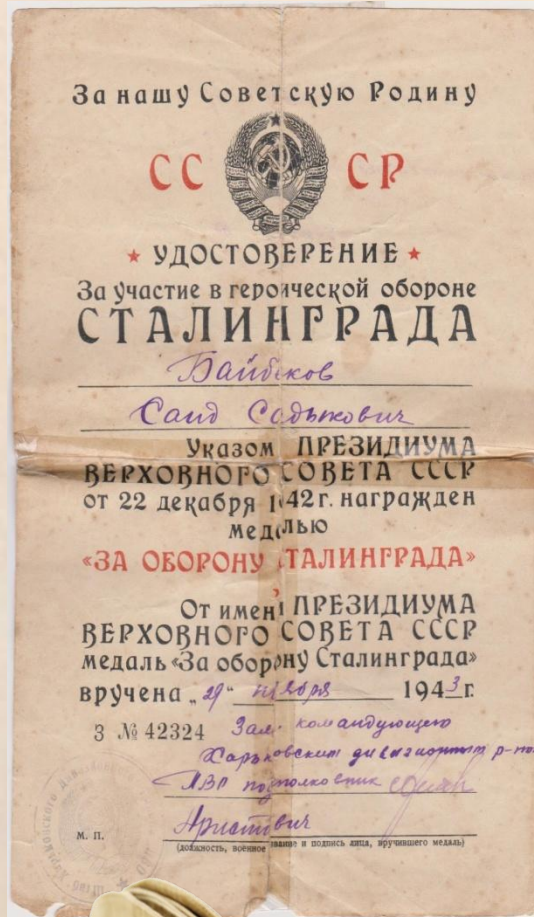 За нашу Советскую Родину
СС СР
УДОСТОВЕРЕНИЕ
За участие в героической обороне
СТАЛИНГРАДА
Байбеков
Саид Садыкович
Указом ПРЕЗИДИУМА
ВЕРХОВНОГО СОВЕТА СССР
от 22 декабря 1942 г. награжден
медалью
«ЗА ОБОРОНУ СТАЛИНГРАДА»
От имени ПРЕЗИДИУМА
ВЕРХОВНОГО СОВЕТА СССР
медаль «За оборону Сталинграда»
вручена „29" ноября 1943 г.
З № 42324 Зам. командующего
Харьковским р-на
ПВО подполковник
М. П.
(должность, военное звание и подпись лица, вручившего медаль)